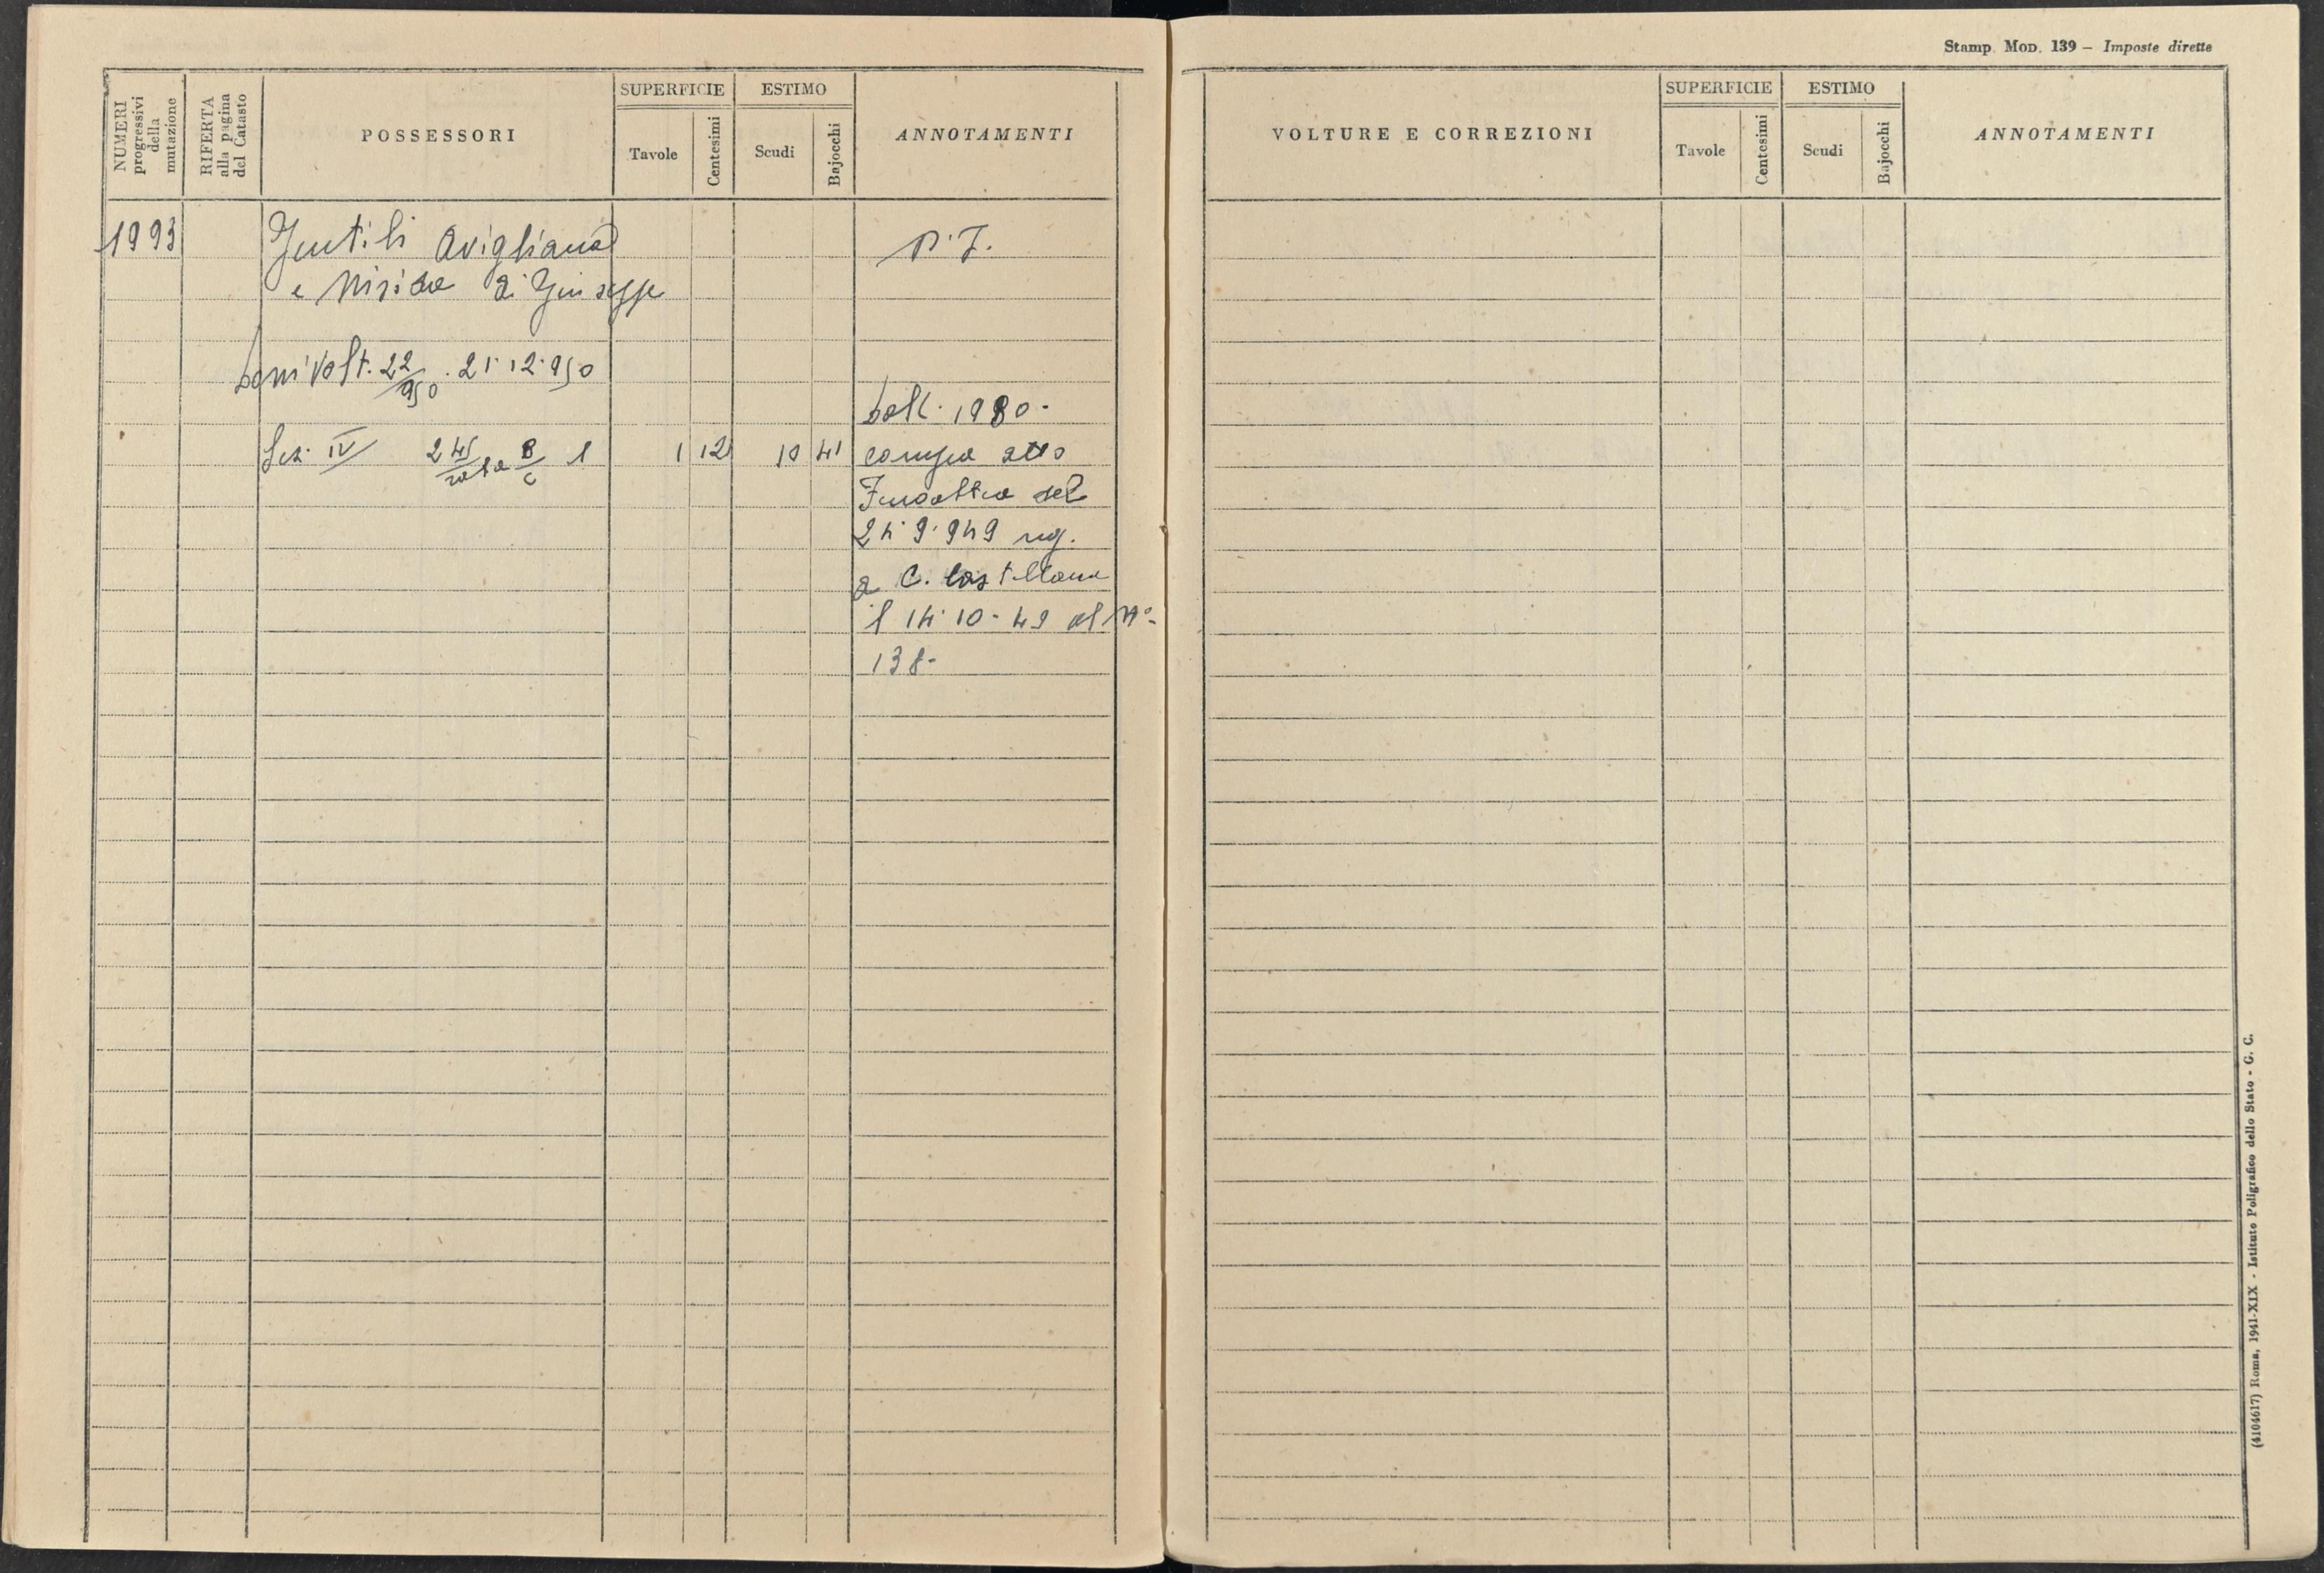 Stamp. MOD. 139 – Imposte dirette
NUMERI progressivi della mutazione
RIFERTA alla pagina del Catasto
POSSESSORI
SUPERFICIE
Tavole
Centesimi
ESTIMO
Scudi
Bajocchi
ANNOTAMENTI
1993
Gentili Avigliana
P. F.
e Nisida di Giuseppe
Volt. 22/950 . 21.12.950
1980.
Sez. IV 245/rata B/C 1 1 12 10 41 compra atto
del
24.9.949 reg.
a C. Castellana
il 14.10.49 al N°
138.
VOLTURE E CORREZIONI
SUPERFICIE
Tavole
Centesimi
ESTIMO
Scudi
Bajocchi
ANNOTAMENTI
(4104617) Roma, 1941-XIX - Istituto Poligrafico dello Stato - G. C.